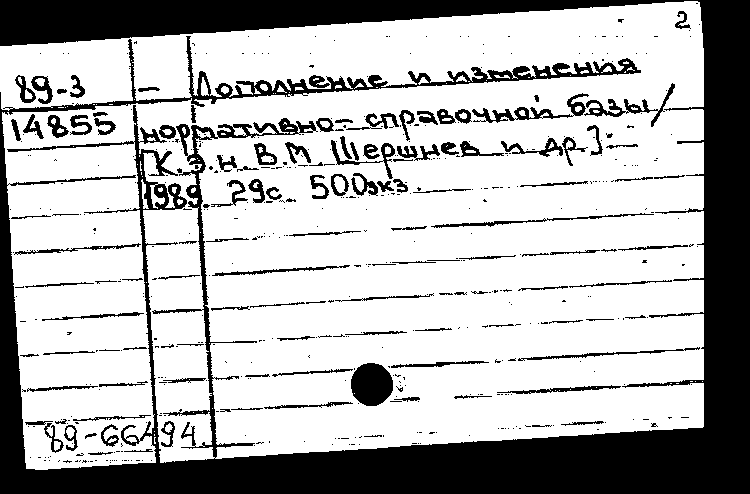 2
89-3 – Дополнение и изменения
14855 нормативно-справочной базы /
[К.Э.н. В.М. Шершнев и др.]:–
1989. 29с. 500экз.
89-66494.